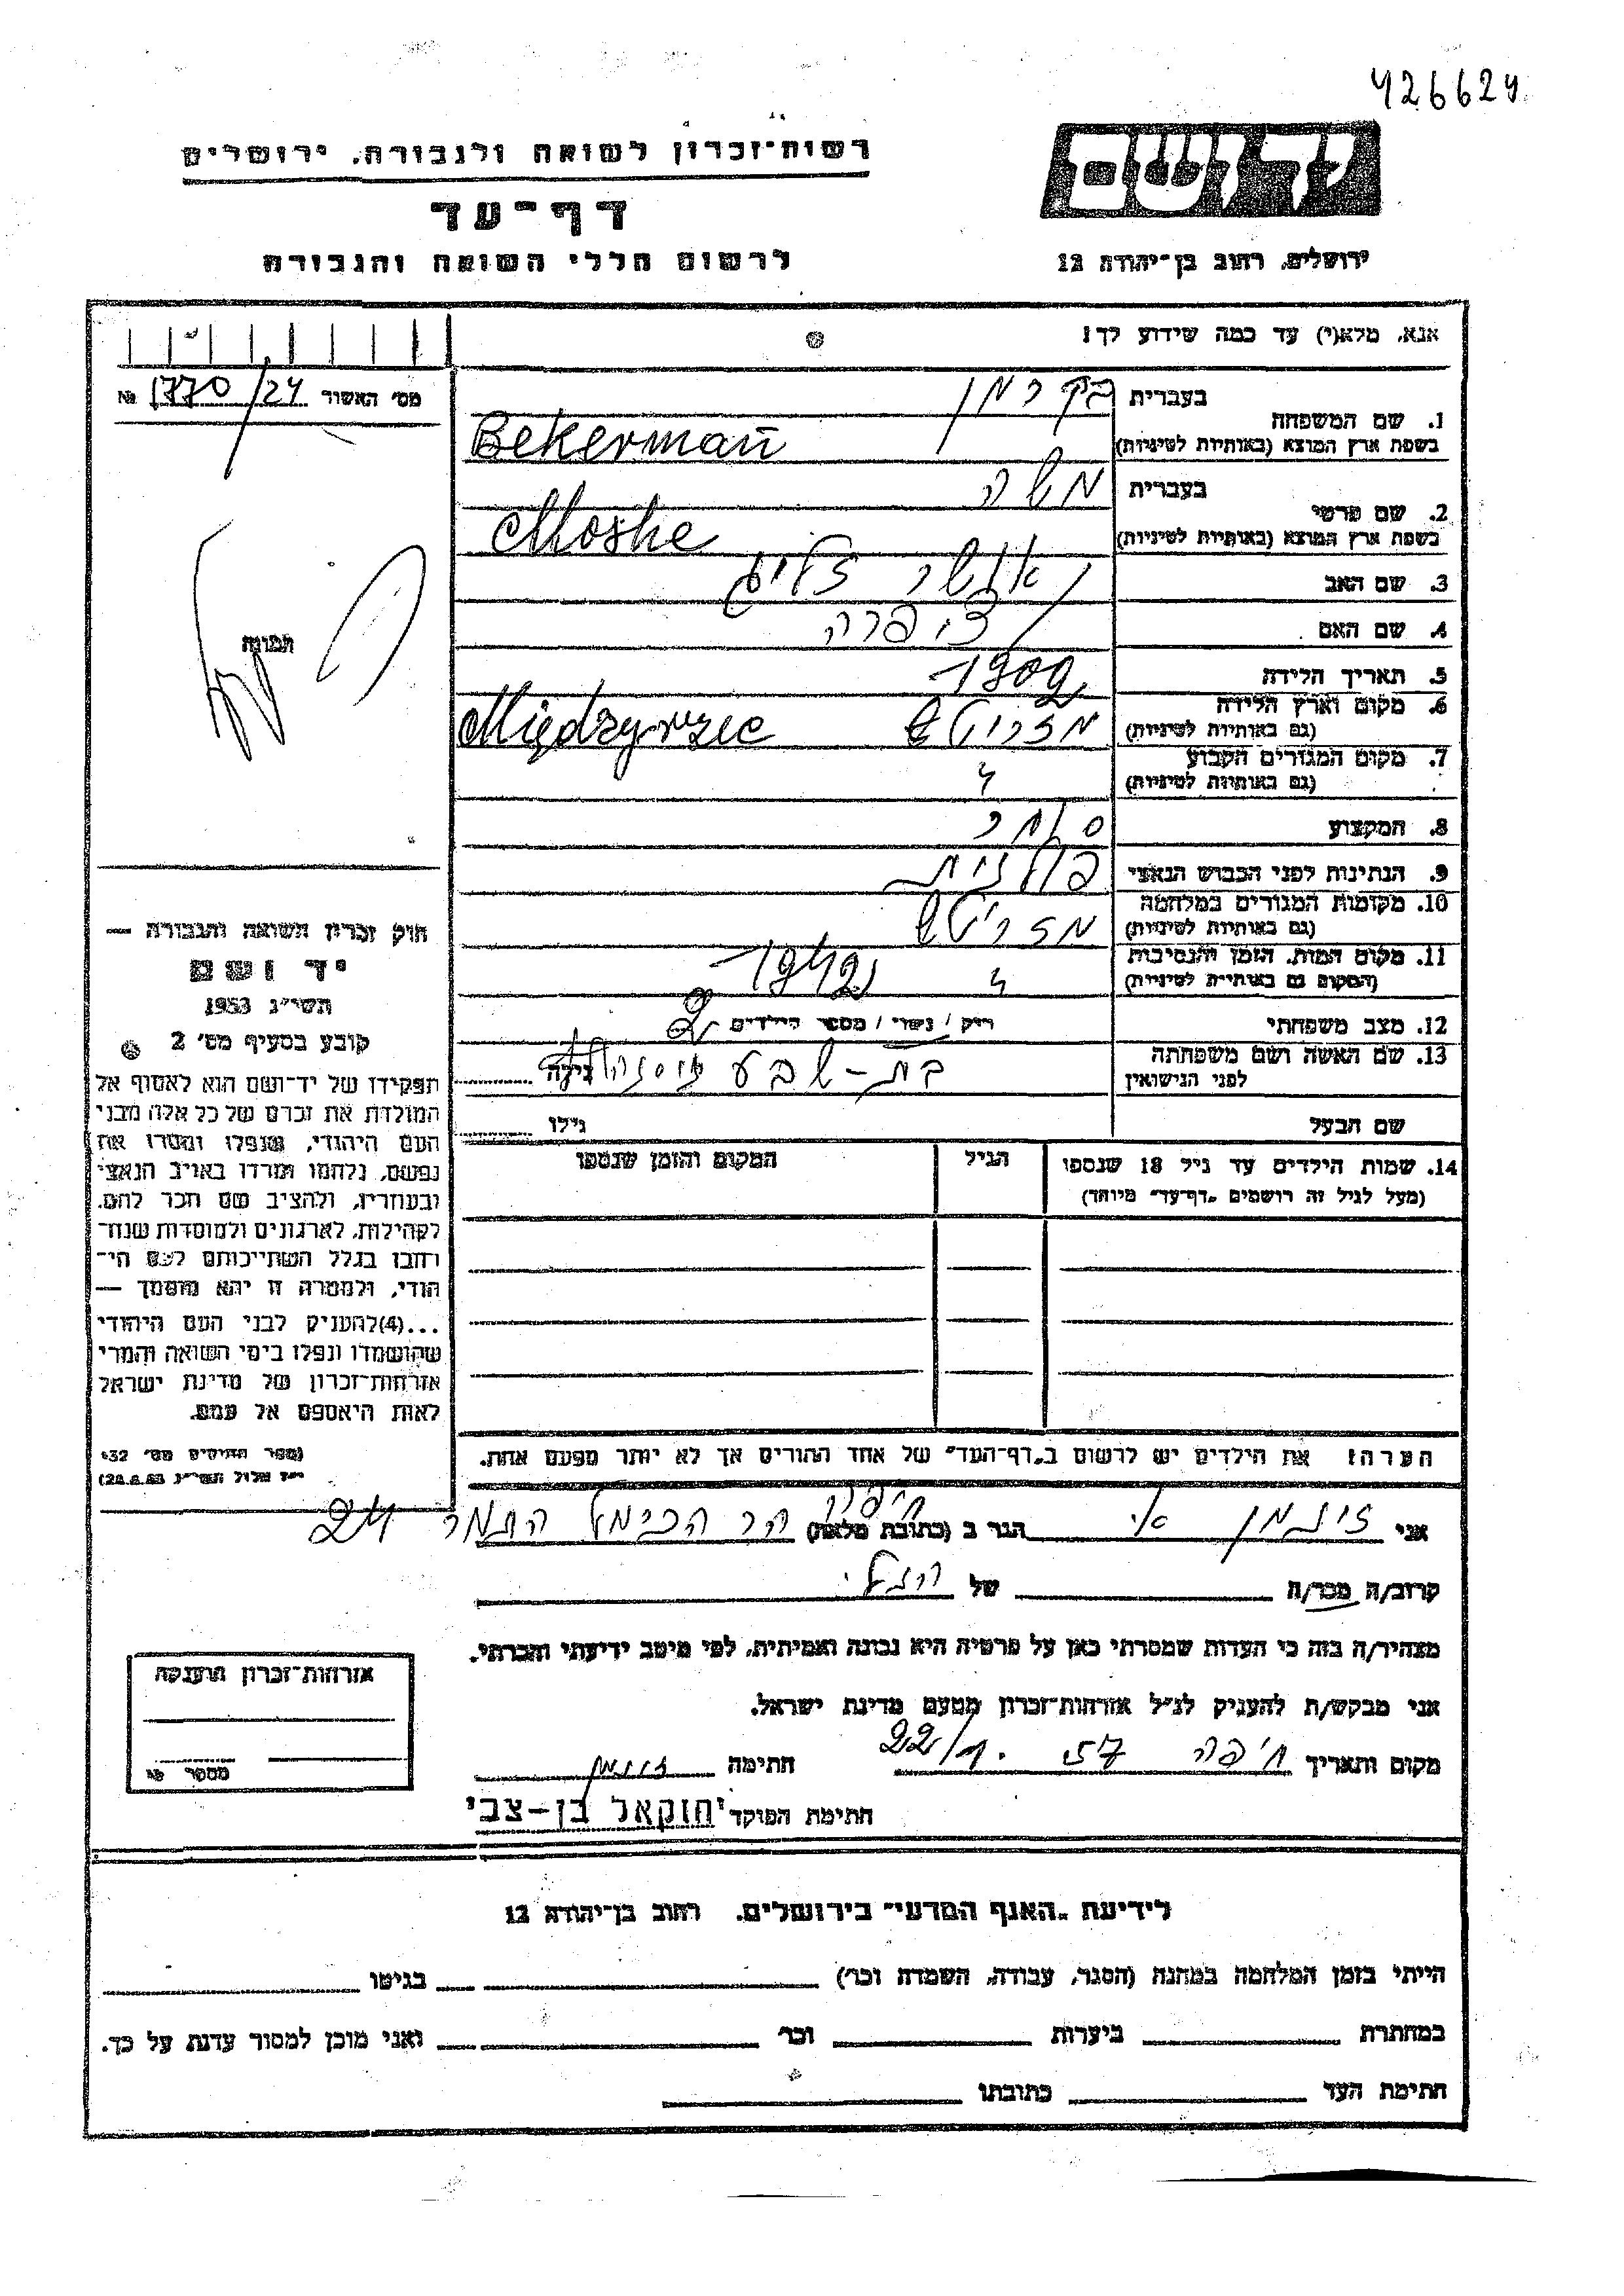 426624
רשות־זכרון לשואה ולגבורה, ירושלים
יד ושם
דף־עד
לרשום חללי השואה והגבורה
ירושלים, רחוב בן־יהודה 12
אנא, מלא(י) עד כמה שידוע לך!
מס׳ האשור 1770/24 №
1. שם המשפחה
בעברית בקרמן
בשפת ארץ המוצא (באותיות לטיניות) Bekerman
2. שם פרטי
בעברית משה
בשפת ארץ המוצא (באותיות לטיניות) Moshe
3. שם האב אשר זליג
4. שם האם צפורה
5. תאריך הלידה 1902
6. מקום וארץ הלידה
(גם באותיות לטיניות) מזריטש Międzyrzec
7. מקום המגורים הקבוע
(גם באותיות לטיניות) "
8. המקצוע סוחר
9. הנתינות לפני הכבוש הנאצי פולנית
10. מקומות המגורים במלחמה
(גם באותיות לטיניות) מזריטש
11. מקום המות, הזמן והנסיבות
(המקום גם באותיות לטיניות) " 1942
12. מצב משפחתי רוק / נשוי / מספר הילדים 2
13. שם האשה ושם משפחתה
לפני הנישואין בת-שבע גילה
שם הבעל גילו
14. שמות הילדים עד גיל 18 שנספו
(מעל לגיל זה רושמים „דף־עד״ מיוחד)
הגיל
המקום והזמן שנספו
הערה! את הילדים יש לרשום ב„דף־העד״ של אחד ההורים אך לא יותר מפעם אחת.
תמונה
חוק זכרון השואה והגבורה —
יד ושם
תשי״ג 1953
קובע בסעיף מס׳ 2
תפקידו של יד־ושם הוא לאסוף אל
המולדת את זכרם של כל אלה מבני
העם היהודי, שנפלו ומסרו את
נפשם, נלחמו ומרדו באויב הנאצי
ובעוזריו, ולהציב שם וזכר להם,
לקהילות, לארגונים ולמוסדות שנח־
רבו בגלל השתייכותם לעם הי־
הודי, ולמטרה זו יהא מוסמך —
...(4)להעניק לבני העם היהודי
שהושמדו ונפלו בימי השואה והמרי
אזרחות־זכרון של מדינת ישראל
לאות היאספם אל עמם.
(ספר החוקים מס׳ 132
י״ז אלול תשי״ג 28.8.53)
אני זוגמן הגר ב (כתובת מלאה) חיפה הר הכרמל התמר 24
קרוב/ה מכר/ה של הנ״ל
מצהיר/ה בזה כי העדות שמסרתי כאן על פרטיה היא נכונה ואמיתית, לפי מיטב ידיעתי והכרתי.
אני מבקש/ת להעניק לנ״ל אזרחות־זכרון מטעם מדינת ישראל.
מקום ותאריך חיפה 57 .22/1 חתימה
חתימת הפוקד יחזקאל בן-צבי
אזרחות־זכרון הוענקה
מספר №
לידיעת „האגף המדעי״ בירושלים, רחוב בן־יהודה 12
הייתי בזמן המלחמה במחנה (הסגר, עבודה, השמדה וכו׳) בגיטו
במחתרת ביערות וכו׳ ואני מוכן למסור עדות על כך.
חתימת העד כתובתו